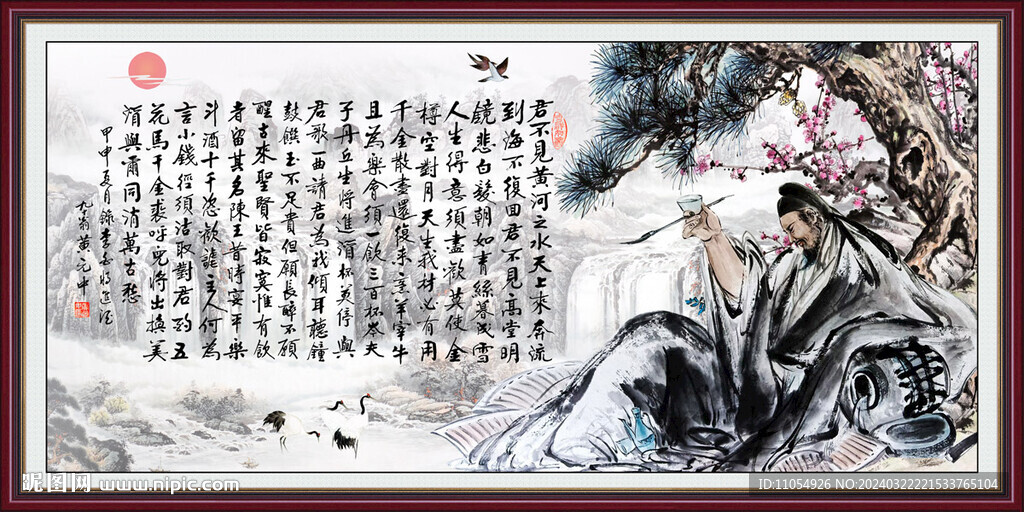 君不見黃河之水天上來奔流
到海不復回君不見高堂明
鏡悲白髮朝如青絲暮成雪
人生得意須盡歡莫使金
樽空對月天生我材必有用
千金散盡還復來烹羊宰牛
且為樂會須一飲三百杯岑夫
子丹丘生將進酒杯莫停與
君歌一曲請君為我傾耳聽鐘
鼓饌玉不足貴但願長醉不願
醒古來聖賢皆寂寞惟有飲
者留其名陳王昔時宴平樂
斗酒十千恣歡謔主人何為
言少錢徑須沽取對君酌五
花馬千金裘呼兒將出換美
酒與爾同消萬古愁
甲申夏月錄李白將進酒
翁黃元中
昵图网 www.nipic.com
ID:11054926 NO:20240322221533765104